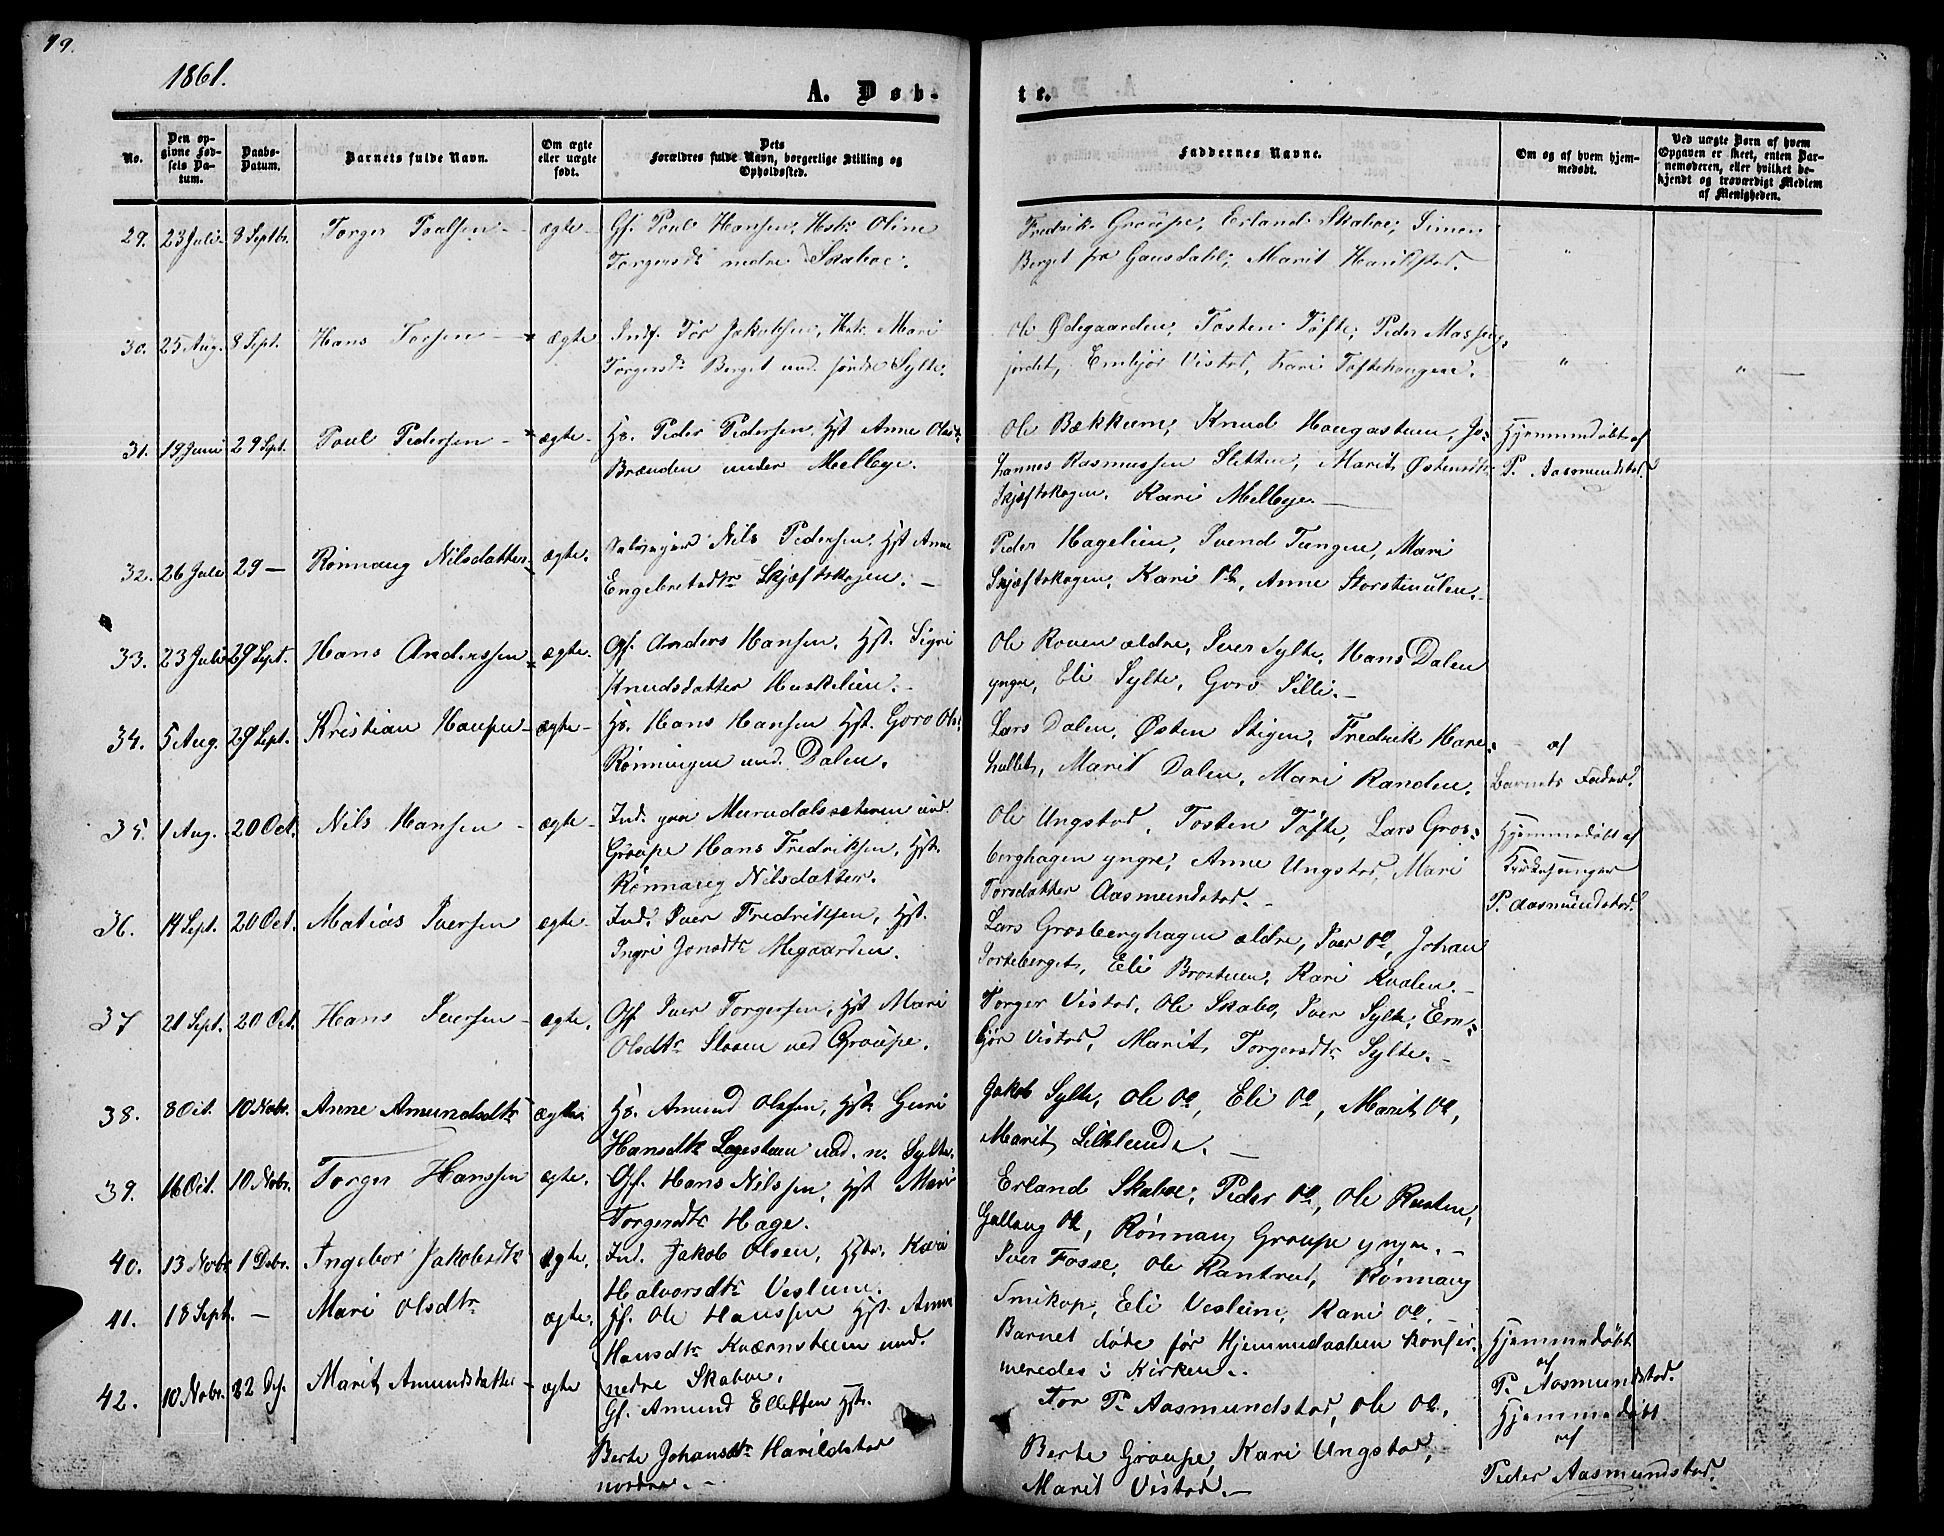 79.
1861.
A. Døb-
te.
No.
Den op-
givne Fød-
sels Da-
tum.
Daabs-
Datum.
Barnets fulde Navn.
Om ægte
eller uægte
født.
Dets
Forældres fulde Navn, borgerlige Stilling og
Opholdssted.
Faddernes Navne.
Om og af hvem hjem-
medøbt.
Ved uægte Børn af hvem
Opgaven er skeet, enten Bar-
nemoderen, eller hvilket be-
kjendt og troværdigt Medlem
af Menigheden.
29. 23 Juli 8 Septbr. Torger Poulsen - ægte - Gf. Poul Hansen, Hstr. Oline
Torgersdr. nedre Skaboe.
Fredrik Groupe, Erland Skaboe, Simen
Berget fra Gausdahl, Marit Harildstad.
30. 25 Aug. 8 Sept. Hans Torsen - ægte Inds. Tor Jakobsen, Hstr. Mari
Torgersdr. Berget und. søndre Sylte.
Ole Ødegaarden, Tosten Tofte, Peder
jordet, Embjør Vistad, Kari Toftehaugen.
31. 19 Juni 29 Sept. Poul Pedersen - ægte - Hs. Peder Pedersen, Hst Anne Olsdr.
Brænden under Melbye.
Ole Bækkum, Knud Haugasteen, Jo-
hannes Rasmussen Sletten, Marit Østensdr.
Skjæftskogen, Kari Melbye. -
Hjemmedøbt af
P. Aasmundstad.
32. 26 Juli 29 - Rønnaug Nilsdatter ægte. Selveejer Nils Pedersen, Hst Anne
Engebretsdtr Skjæftskogen. -
Peder Hagelien, Svend Tungen, Mari
Skjæftskogen, Kari Do, Anne Storstenulen. -
33. 23 Juli 29 Sept. Hans Anderssen ægte. Gf. Anders Hansen, Hst. Sigri
Knudsdatter Huskelien. -
Ole Roven ældre, Iver Sylte, Hans Dalen
yngre, Eli Sylte, Goro Silli. -
34. 5 Aug. 29 Sept. Kristian Hansen - ægte - Hs. Hans Hansen Hst. Goro Olsd.
Rønningen und. Dalen.
Lars Dalen, Østen Stigen, Fredrik Hare-
hullet, Marit Dalen, Mari Randen.
af
Barnets Fader.
35. 1 Aug. 20 Oct. Nils Hansen - ægte - Ind. paa Murudalssæteren und
Groupe Hans Fredriksen, Hst.
Rønnaug Nilsdatter.
Ole Ungstad, Tosten Tofte, Lars Gros-
berghagen yngre, Anne Ungstad, Mari
Torsdatter Aasmundstad. -
Hjemmedøbt af
Kirkesanger
P. Aasmundstad.
36. 14 Sept. 20 Oct. Matias Iversen ægte. Ind. Iver Fredriksen, Hst.
Ingri Jonsdtr Megaarden.
Lars Grosberghagen ældre, Iver Do, Johan
Torteberget, Eli Brosteen, Kari Kvalen. -
37 21 Sept. 20 Oct. Hans Iversen - ægte. Gf. Iver Torgersen, Hst Mari
Olsdtr Sloen ved Groupe.
Torger Vistad, Ole Skabo, Iver Sylte, Em-
bjør Vistad, Marit Torgersdtr Sylte. -
38. 8 Oct. 10 Nobr. Anne Amundsdtr ægte. Hs. Amund Olsen, Hst. Guri
Hansdtr Løgesteen und. n. Sylte.
Jakob Sylte, Ole Do, Eli Do, Marit Do,
Marit Lillelunde. -
39. 16 Oct. 10 Nobr. Torger Hanssen ægte. Gf. Hans Nilssen, Hst Mari
Torgersdtr Hage.
Erland Skaboe, Peder Do, Ole Rusten,
Gullaug Do, Rønnaug Groupe yngre. -
40. 13 Nobr. 1 Debr. Ingebor Jakobsdtr ægte. Ind. Jakob Olsen, Hstr. Kari
Halvorsdtr Veslum.
Iver Fosse, Ole Rantrud, Rønnaug
Smikop, Eli Veslum, Kari Do. -
41. 18 Sept. - Mari Olsdtr ægte. Gf. Ole Hanssen Hst. Anne
Hansdtr Kværnsteen und.
nedre Skaboe.
Barnet døde før Hjemmedaaben konfir-
meredes i Kirken. -
Hjemmedøbt
af
P. Aasmundstad.
42. 10 Nobr. 22 De. Marit Amundsdatter - ægte Gf. Amund Ellefsen Hstr.
Berte Johansdtr Harildstad
nordre. -
Tor P. Aasmundstad, Ole Do.,
Berte Groupe, Kari Ungstad,
Marit Vistad. -
Hjemmedøbt
af
Peder Aasmundstad.